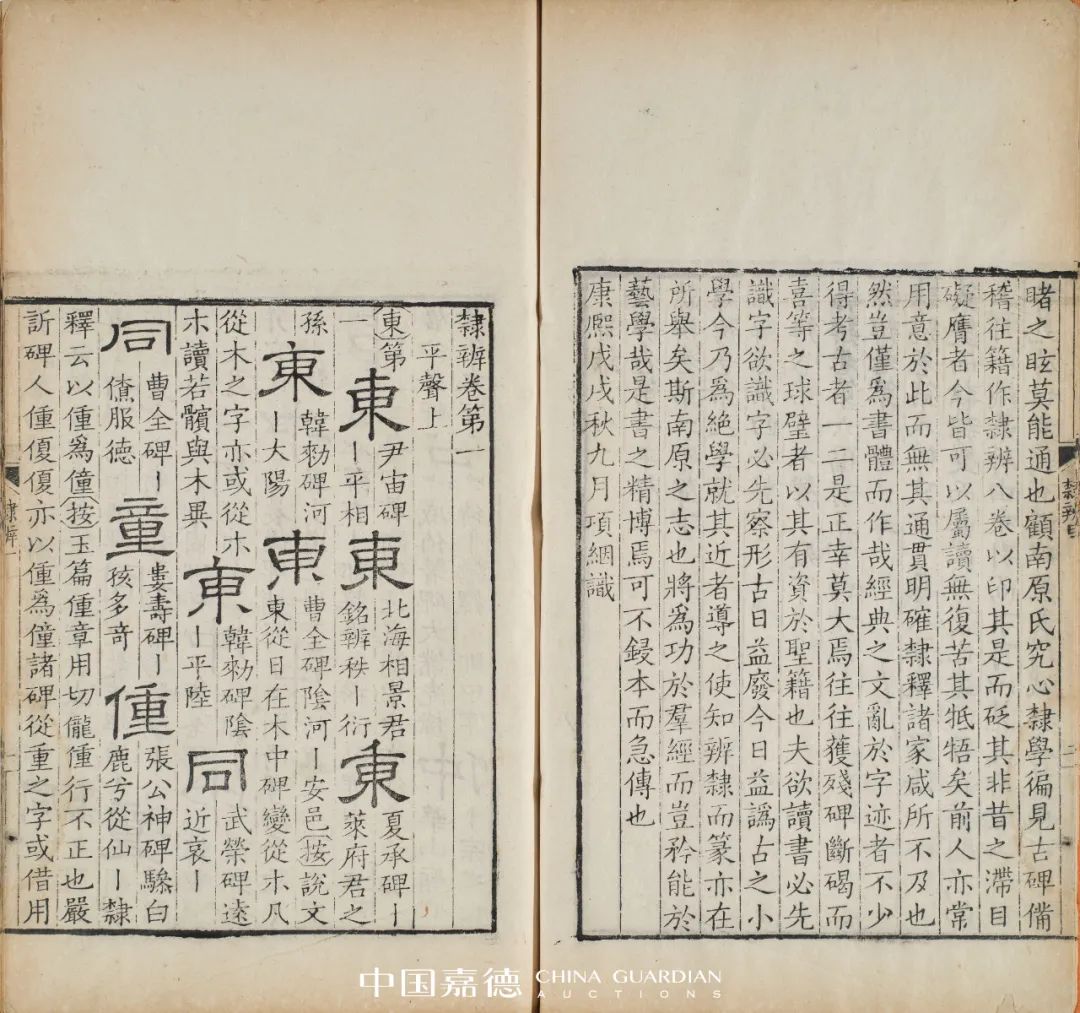 睹之昡莫能通也顧南原氏究心隸學徧見古碑備
稽往籍作隸辨八卷以印其是而砭其非昔之滯目
礙膺者今皆可以屬讀無復苦其牴牾矣前人亦常
用意於此而無其通貫明確隸釋諸家咸所不及也
然豈僅為書體而作哉經典之文亂於字迹者不少
得考古者一二是正幸莫大焉往往獲殘碑斷碣而
喜等之球璧者以其有資於聖籍也夫欲讀書必先
識字欲識字必先察形古日益廢今日益譌古之小
學今乃為絕學就其近者導之使知辨隸而篆亦在
所舉矣斯南原之志也將為功於羣經而豈矜能於
藝學哉是書之精博焉可不鋟本而急傳也
康熙戊戌秋九月項絪識
隸辨
隸辨卷第一
平聲上
東第一
東 尹宙碑｜平相 東 北海相景君銘辨秩｜衍 東 夏承碑｜萊府君之孫
東 韓勑碑河｜大陽 東 曹全碑陰河｜安邑按說文東從日在木中碑變從木凡從木之字亦或從朩朩讀若髕與木異
東 韓勑碑陰｜平陸
同 武榮碑遠近哀｜
同 曹全碑｜僚服德 童 婁壽碑｜孩多奇 僮 張公神碑驂白鹿兮從仙｜隸釋云以僮為僮按玉篇僮章用切儱僮行不正也嚴訢碑人僮優優亦以僮為僮諸碑從重之字或借用
隸辨一
中国嘉德 CHINA GUARDIAN
AUCTIONS